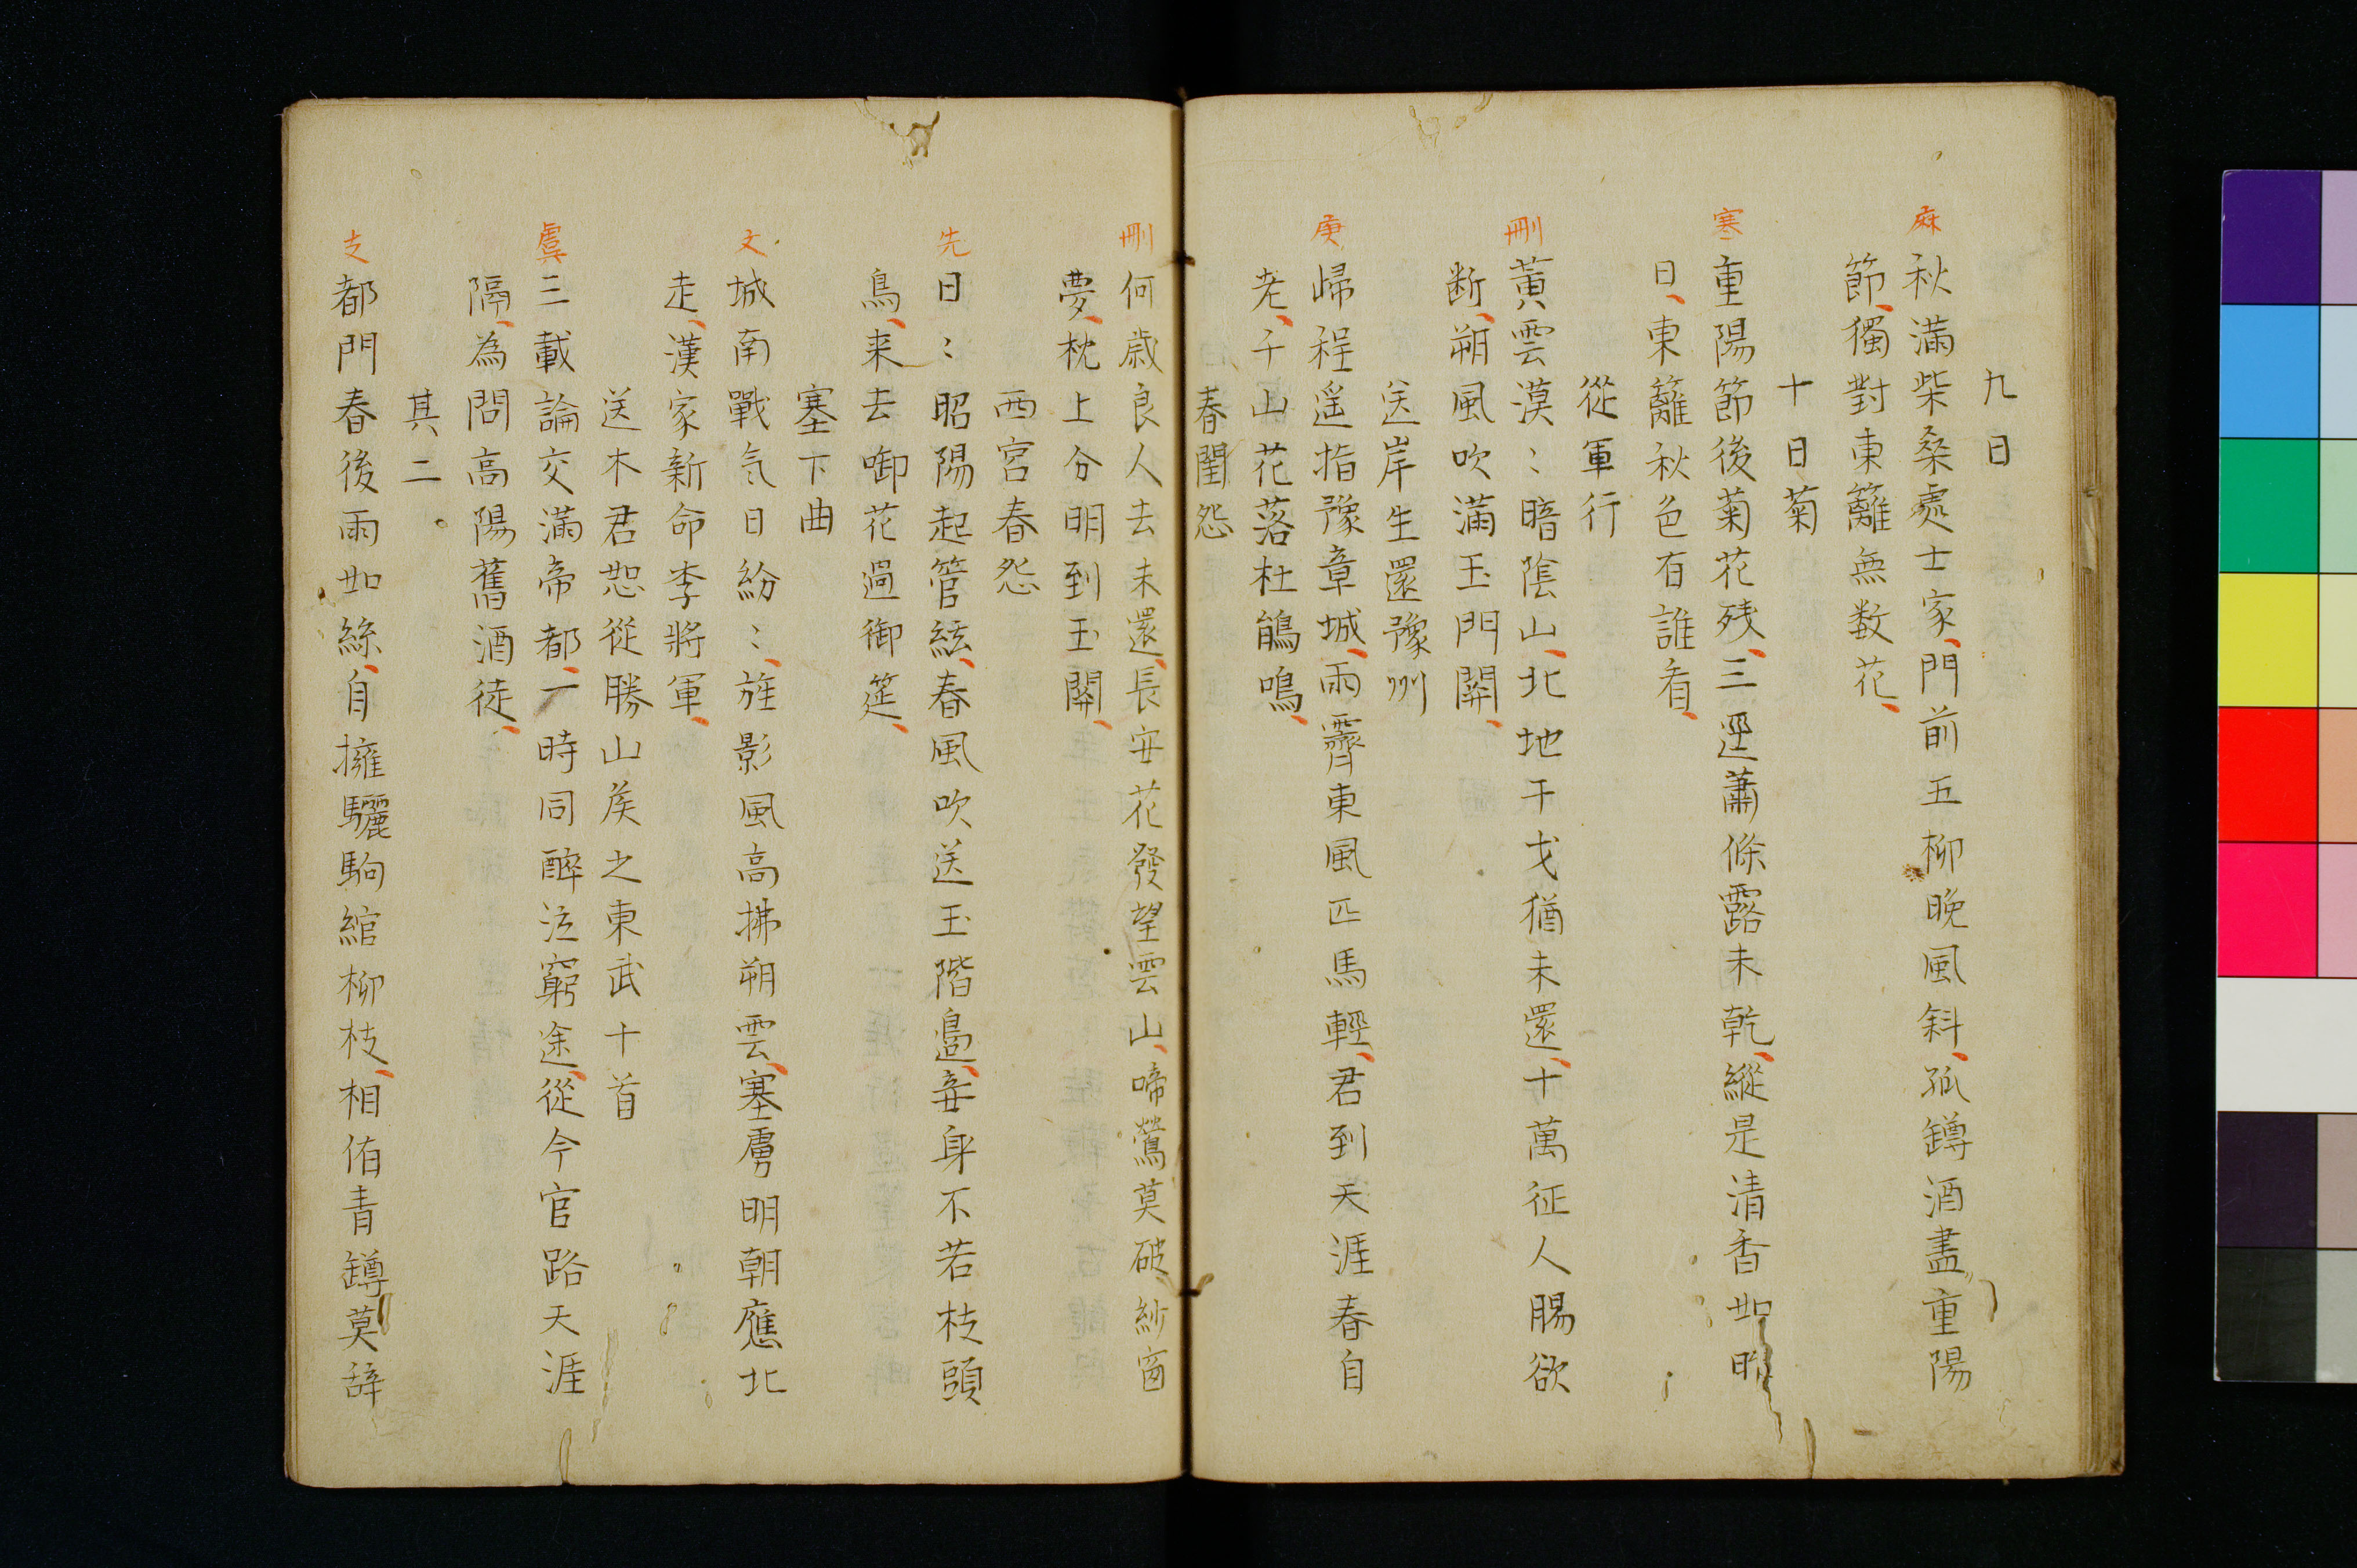 九日
麻 秋滿柴桑處士家、門前五柳晚風斜、孤罇酒盡重陽
節、獨對東籬無数花、
十日菊
寒 重陽節後菊花残、三逕蕭條露未乾、縱是清香如昨
日、東籬秋色有誰看、
從軍行
刪 黃雲漠〻暗陰山、北地干戈猶未還、十萬征人腸欲
断、朔風吹滿玉門関、
送岸生還豫州
庚 歸程遥指豫章城、雨霽東風匹馬輕、君到天涯春自
老、千山花落杜鵑鳴、
春閨怨
刪 何歲良人去未還、長安花發望雲山、啼鶯莫破紗窗
夢、枕上分明到玉関、
西宮春怨
先 日〻昭陽起管絃、春風吹送玉階邉、妾身不若枝頭
鳥、来去啣花過御筵、
塞下曲
文 城南戰気日紛〻、旌影風高拂朔雲、塞虜明朝應北
走、漢家新命李將軍、
送木君恕從勝山矦之東武十首
虞 三載論交滿帝都、一時同醉泣窮途、從今官路天涯
隔、為問高陽舊酒徒、
其二
支 都門春後雨如絲、自擁驪駒綰柳枝、相侑青罇莫辞